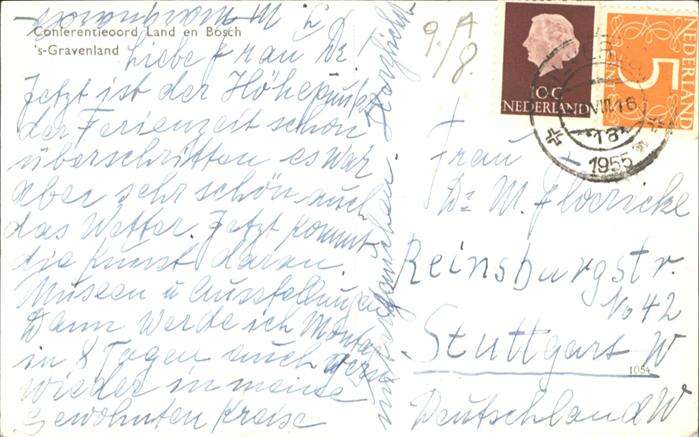 Conferentieoord Land en Bosch
's-Gravenland
Liebe Frau Dr!
Jetzt ist der Höhepunkt
der Ferienzeit schon
überschritten es war
aber sehr schön auch
das Wetter. Jetzt kommt
die Kunst daran.
Museen u Ausstellungen
Dann werde ich Montag
in 8 Tagen auch
wieder in meine
gewohnten Kreise
9/8.
10 C
NEDERLAND
5
CENT
NEDERLAND
VIII 16
18
1955
Frau
Dr. M. Floericke
Reinsburgstr.
No 42
Stuttgart W
1054
Deutschland W